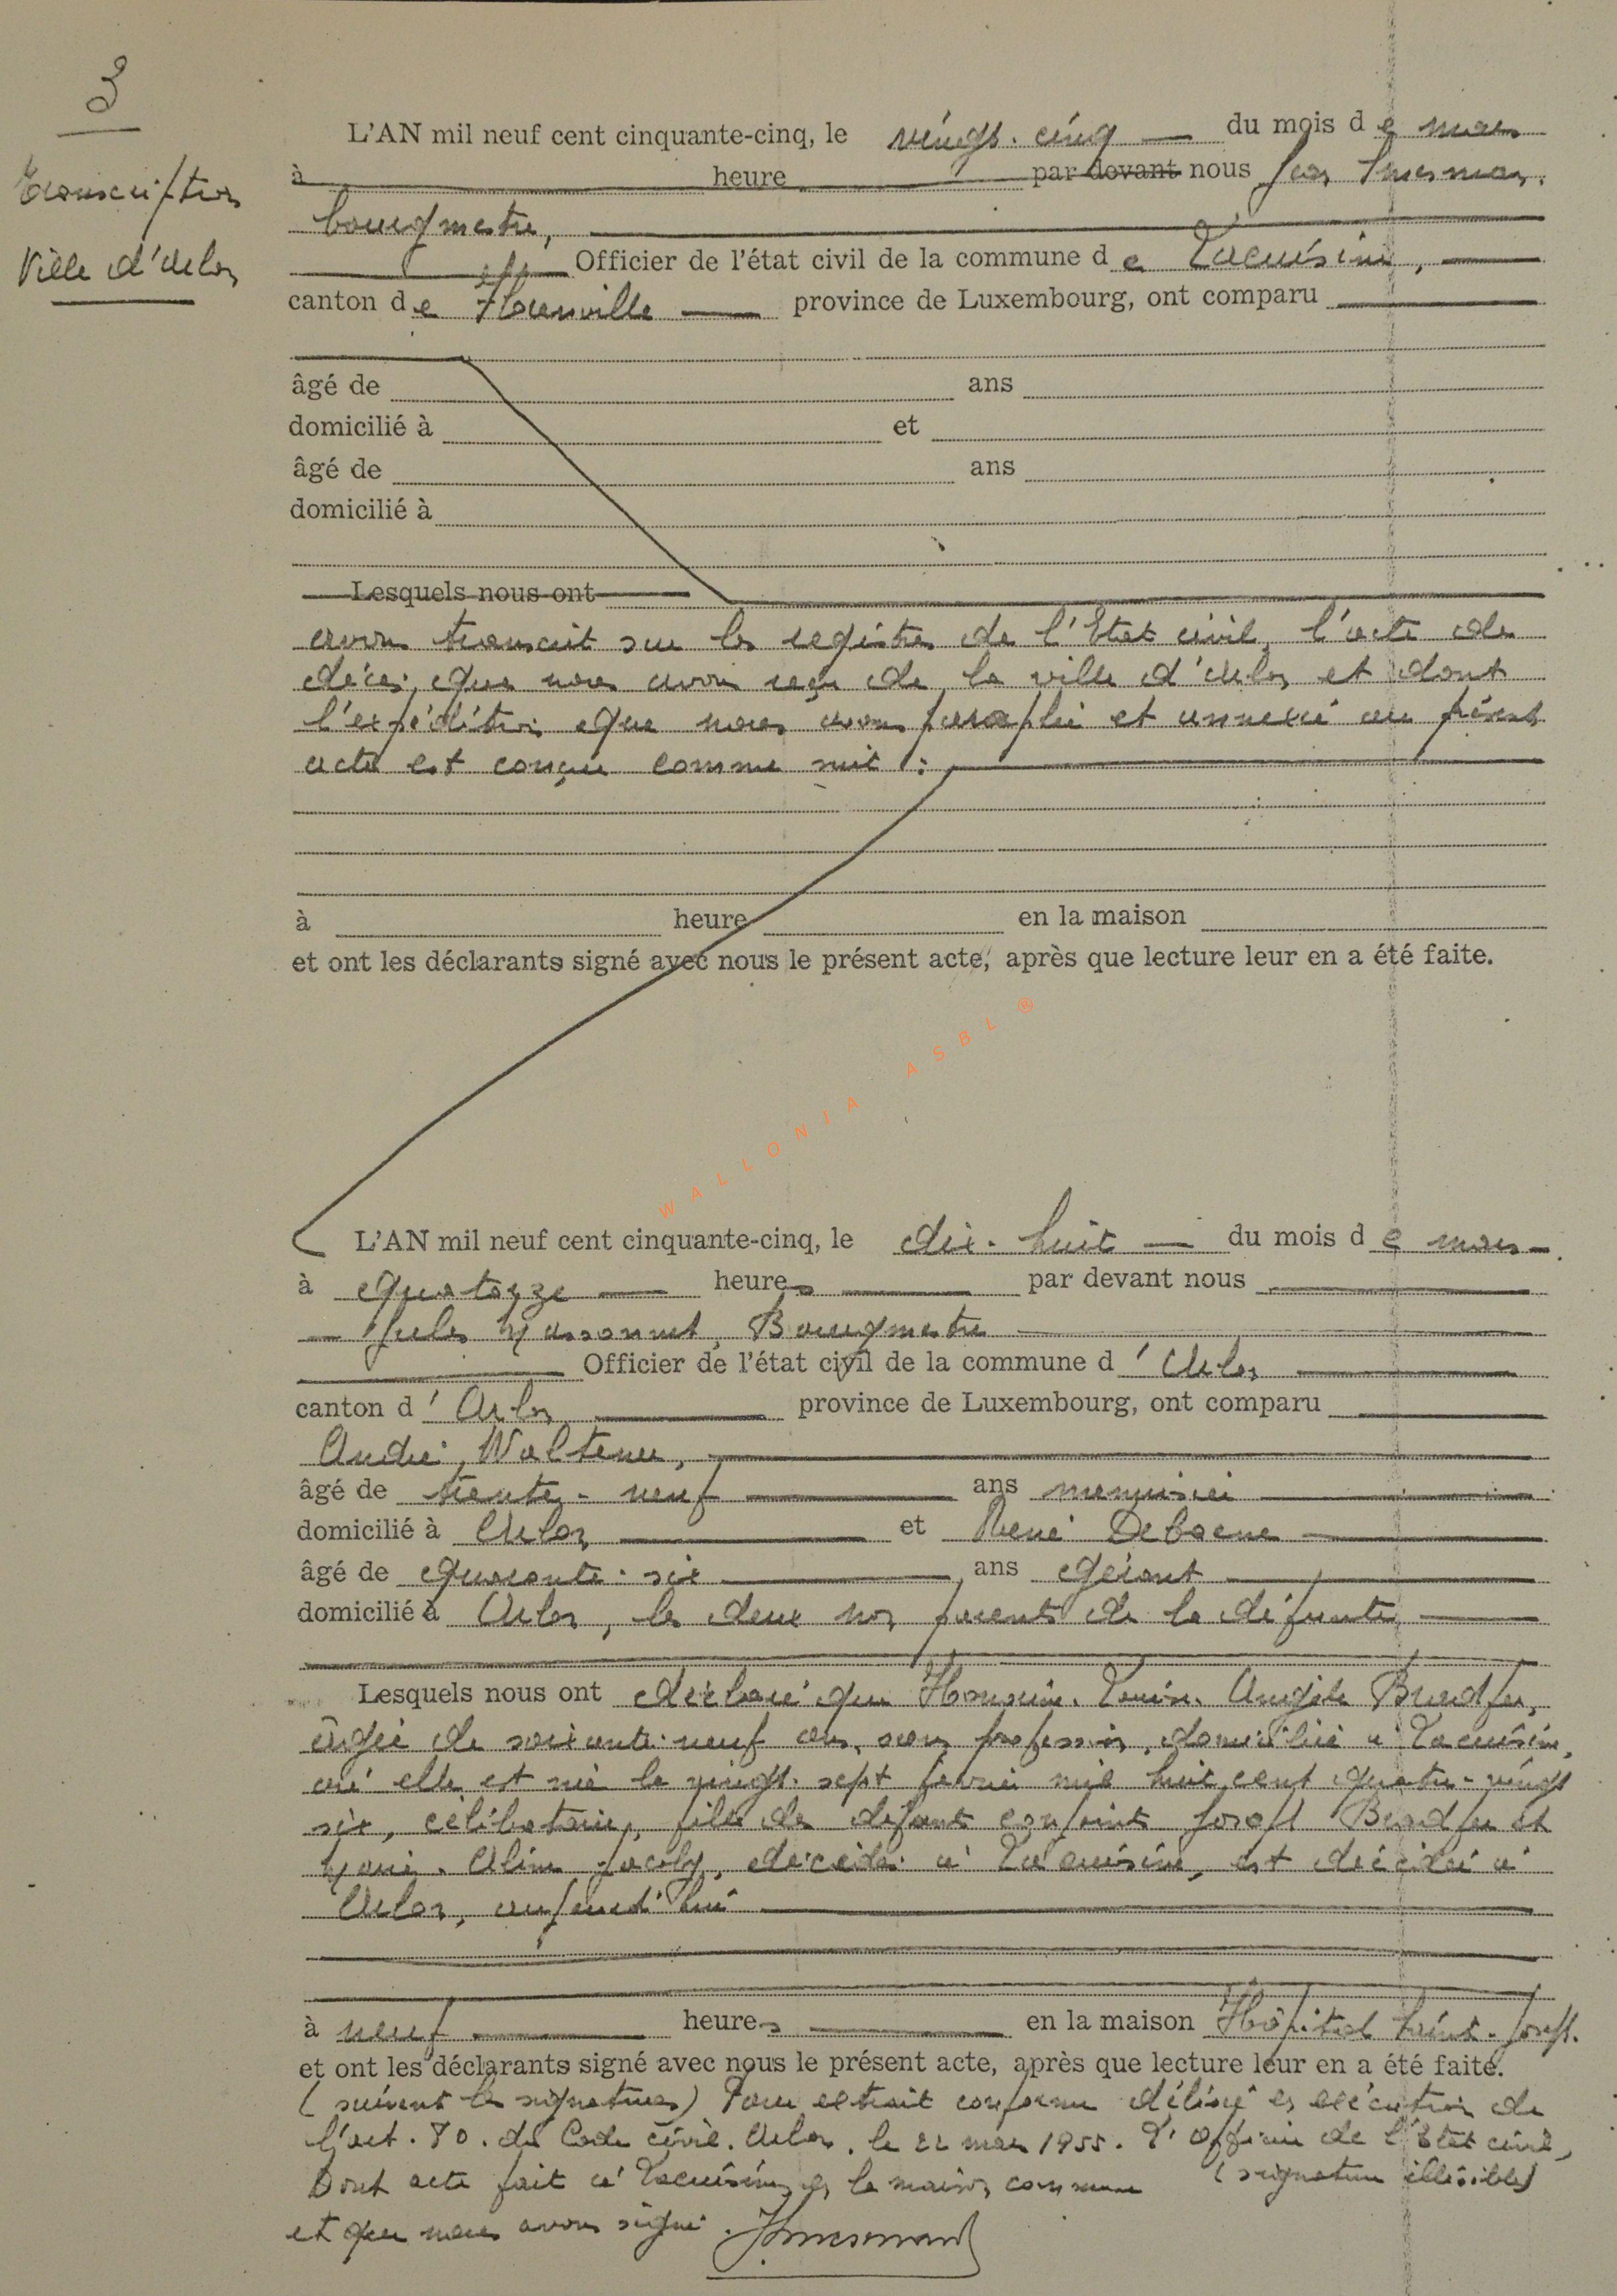 3
Transcription
Ville d'Arlon
L'AN mil neuf cent cinquante-cinq, le vingt-cinq du mois de mars
à heure par devant nous Jean
bourgmestre,
Officier de l'état civil de la commune de Lacuisine,
canton de Florenville province de Luxembourg, ont comparu
âgé de ans
domicilié à et
âgé de ans
domicilié à
Lesquels nous ont
avons transcrit sur les registres de l'Etat civil, l'acte de
décès, que nous avons reçu de la ville d'Arlon et dont
l'expédition que nous avons paraphé et annexé au présent
acte est conçue comme suit :
à heure en la maison
et ont les déclarants signé avec nous le présent acte, après que lecture leur en a été faite.
WALLONIA ASBL ®
L'AN mil neuf cent cinquante-cinq, le dix-huit du mois de mars
à quatorze heures par devant nous
Jules Massonnet, Bourgmestre
Officier de l'état civil de la commune d'Arlon
canton d'Arlon province de Luxembourg, ont comparu
André Waltener,
âgé de trente-neuf ans menuisier
domicilié à Arlon et René
âgé de quarante-six ans gérant
domicilié à Arlon, les deux non parents de la défunte
Lesquels nous ont déclaré que Louise Angèle
âgée de soixante-neuf ans, sans profession, domiciliée à Lacuisine,
où elle est née le vingt-sept février mil huit cent quatre-vingt
six, célibataire, fille des défunts conjoints Joseph et
Marie Jacoby, décédés à Lacuisine, est décédée à
Arlon, aujourd'hui
à neuf heures en la maison Hôpital Saint-Joseph.
et ont les déclarants signé avec nous le présent acte, après que lecture leur en a été faite.
(suivent les signatures) Pour extrait conforme délivré en exécution de
l'art. 80. du Code civil. Arlon, le 22 mars 1955. L'officier de l'Etat civil,
Dont acte fait à Lacuisine en la maison commune (signature illisible)
et que nous avons signé.